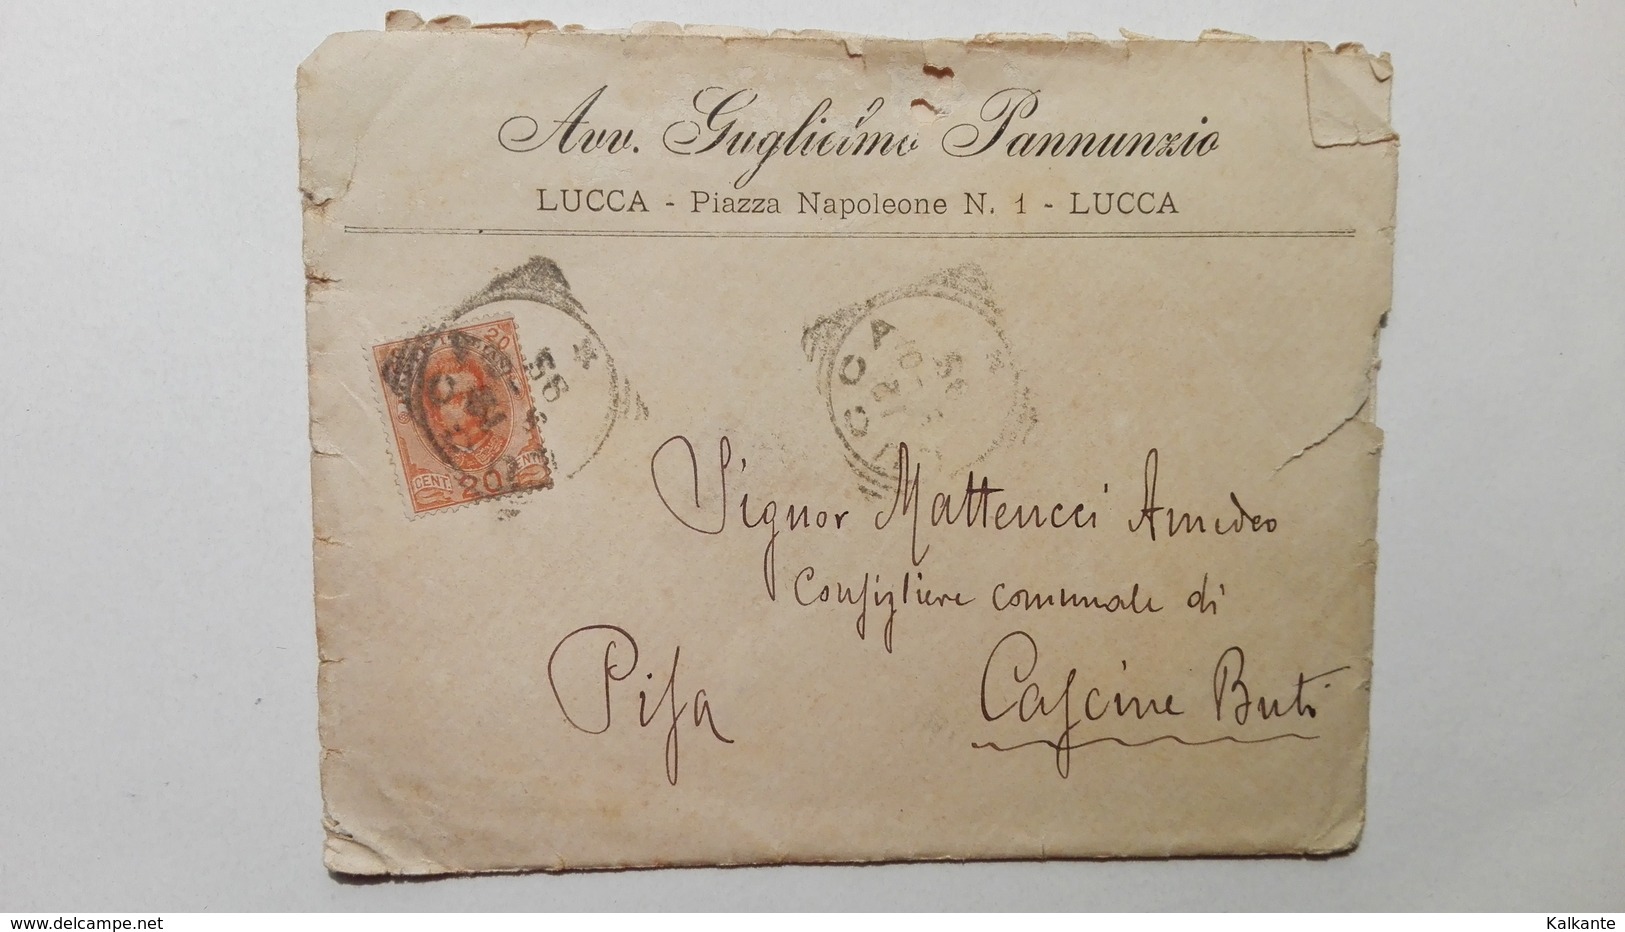 Avv. Guglielmo Pannunzio
LUCCA - Piazza Napoleone N. 1 - LUCCA
20
CENT. 20 CENT.
LUCCA
Signor Matteucci Amedeo
Consigliere comunale di
Pisa Cascine Buti
www.delcampe.net
Kalkante